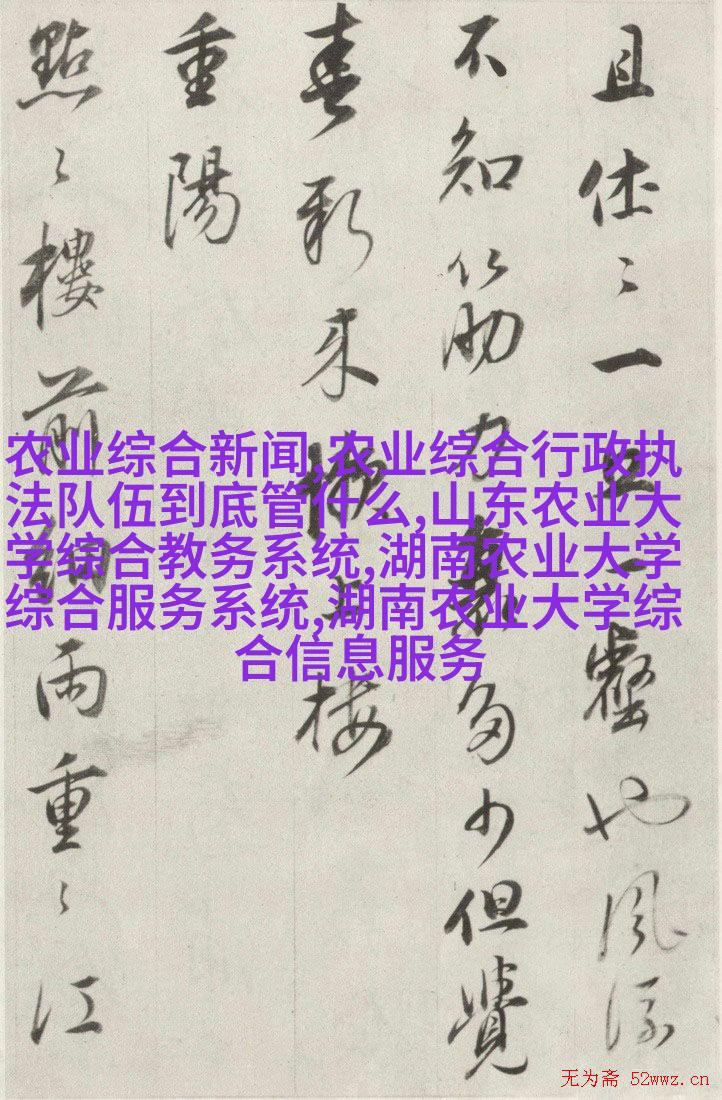 且休〻一丘一壑也風流
不知筋力衰多少但覺
春新来懒上楼
重陽
點〻樓前細雨重〻江
农业综合新闻,农业综合行政执
法队伍到底管什么,山东农业大
学综合教务系统,湖南农业大学
综合服务系统,湖南农业大学综
合信息服务
无为斋 52wwz.cn